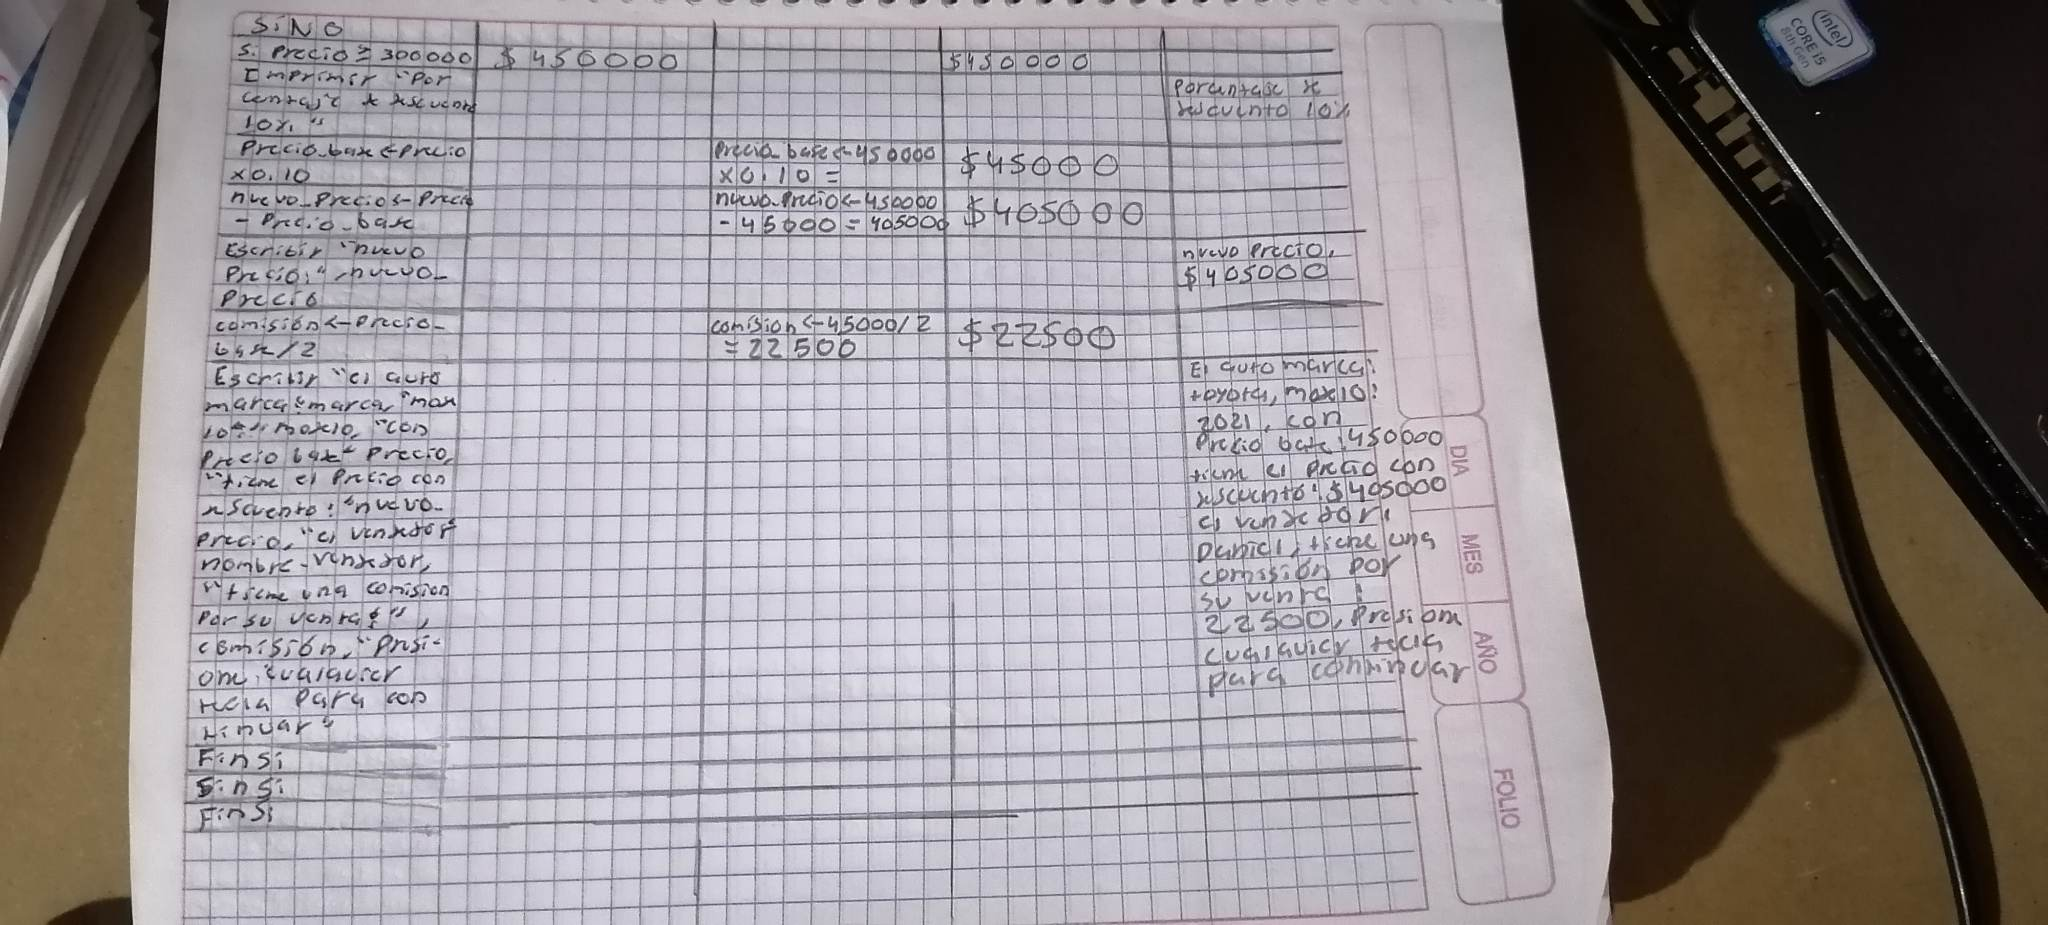 SiNO
Si Precio ≥ 300000 $ 450000 $450000
Imprimir "Por
centaje
10%"
Porcentaje
descuento 10%
Precio_base←Precio Precio_base←450000 $45000
x0.10 x0.10 =
nuevo_Precio←Precio nuevo_Precio←450000 $405000
- Precio_base - 45000 = 405000
Escribir "nuevo nuevo Precio,
Precio:", nuevo_ $405000
Precio
comisión←Precio_ comision←45000/2 $22500
base/2 = 22500
Escribir "el auto
marca: "marca, "mode
lo:" modelo, "con
Precio base" Precio,
"tiene el Precio con
descuento: "nuevo_
Precio, "el vendedor"
nombre-vendedor,
"tiene una comision
Por su venta:",
comisión, "Presi-
one cualquier
tecla Para con
tinuar"
El auto marca:
toyota, modelo:
2021, con
Precio base: 450000
tiene el precio con
descuento: $405000
el vendedor:
Daniel, tiene una
comisión por
su venta:
22500, Presione
cualquier tecla
para continuar
FinSi
SinSi
FinSi
DIA
MES
AÑO
FOLIO
intel
CORE i5
8th Gen